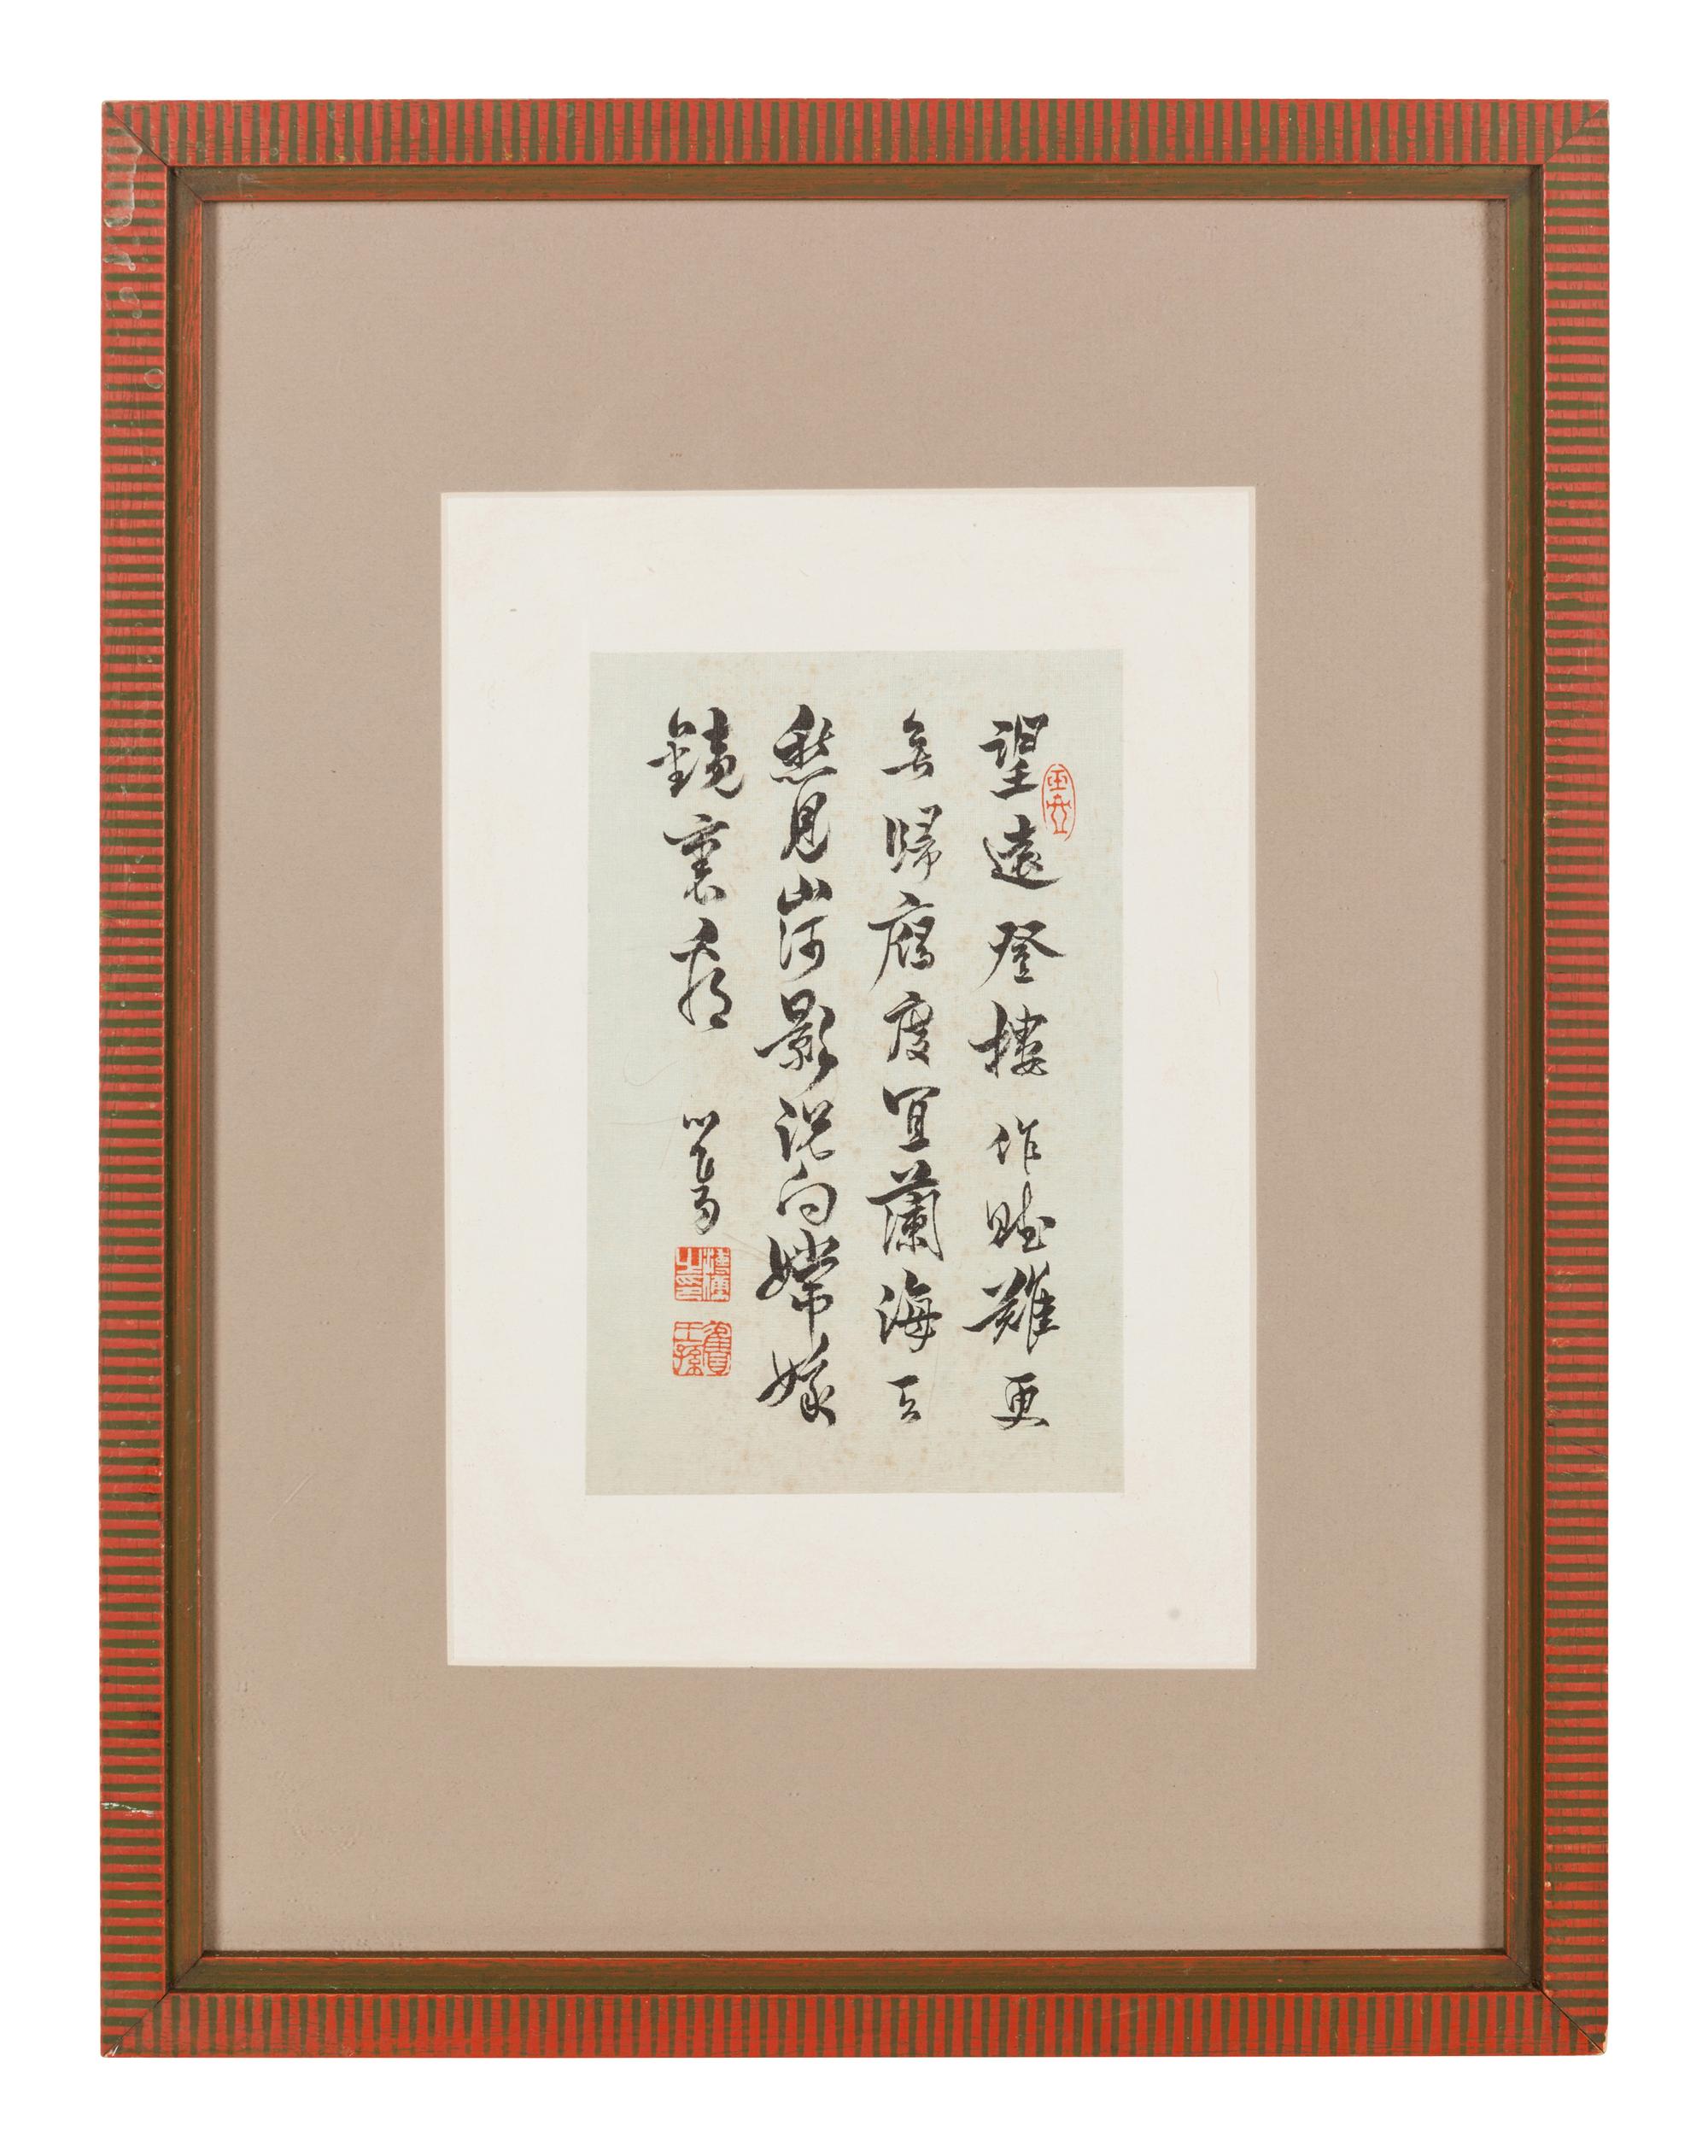 望遠登樓作賦難更
無歸鴈度宜蘭海天
愁見山河影說向嫦娥
鏡裏看 心畬
玉壺
溥儒之印
舊王孫